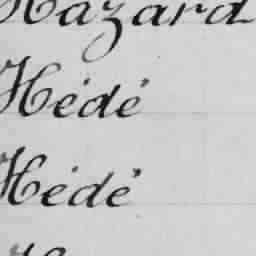 Hazard
Hédé
Hédé